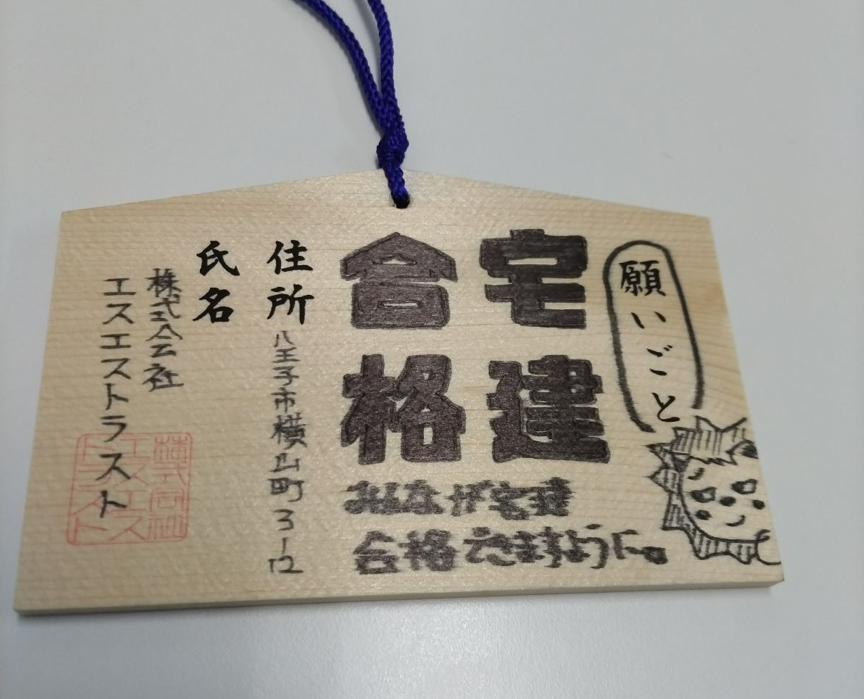 願いごと
宅建
合格
みんなが宅建
合格できますように。
住所
八王子市横山町3-12
氏名
株式会社
エスエストラスト
株式会社
エスエス
トラスト